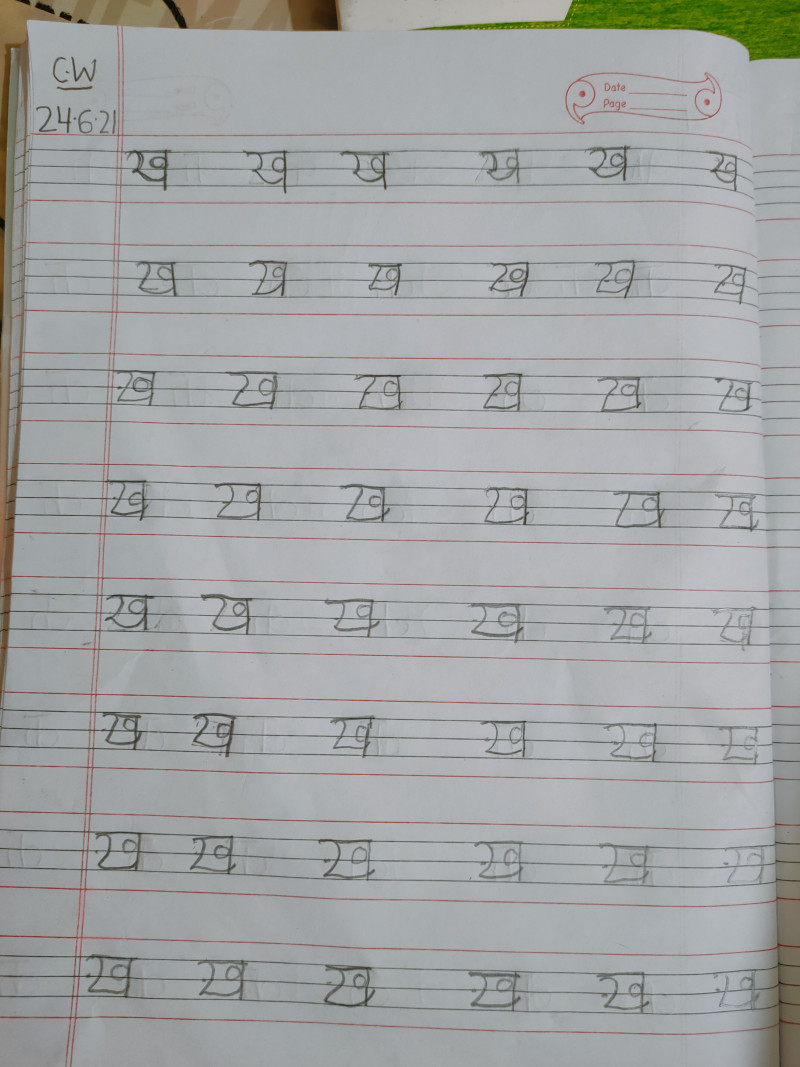 C.W
Date
24.6.21
Page
ख ख ख ख ख ख
ख ख ख ख ख ख
ख ख ख ख ख ख
ख ख ख ख ख ख
ख ख ख ख ख ख
ख ख ख ख ख ख
ख ख ख ख ख ख
ख ख ख ख ख ख